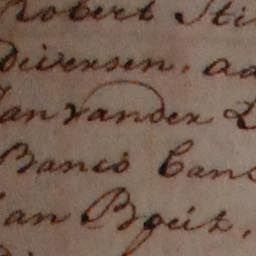 Robert Sti
diversen. aa
Jan vander
Banco Canc
Jan Boeiz,